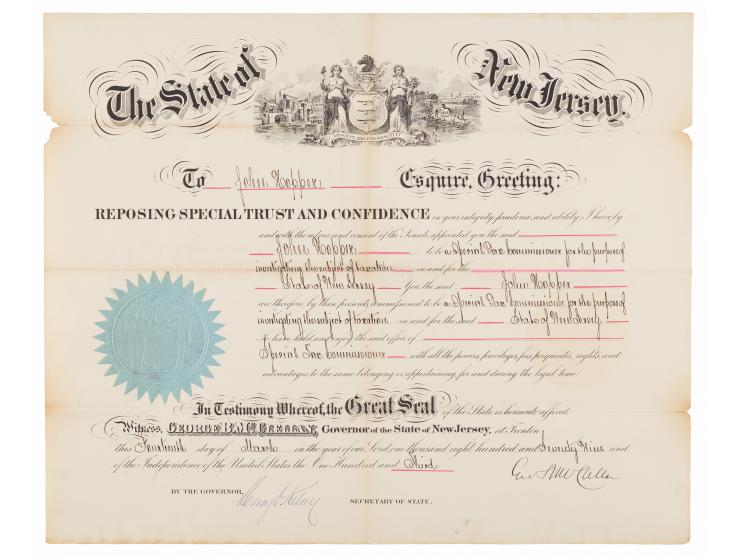 The State of New Jersey.
LIBERTY AND PROSPERITY
To John Hopper Esquire, Greeting:
REPOSING SPECIAL TRUST AND CONFIDENCE in your integrity, prudence, and ability, I have, by
and with the advice and consent of the Senate, appointed you the said
John Hopper to be a Special Tax Commissioner for the purpose of
investigating the subject of taxation in and for the
State of New Jersey You, the said John Hopper
are therefore by these presents, commissioned to be a Special Tax Commissioner for the purpose of
investigating the subject of taxation in and for the said State of New Jersey
to have hold and enjoy the said office of
Special Tax Commissioner with all the powers, privileges, fees, perquisites, rights, and
advantages to the same belonging or appertaining, for and during the legal term.
In Testimony Whereof, the Great Seal of the State is hereunto affixed.
Witness, GEORGE B. McCLELLAN, Governor of the State of New Jersey, at Trenton
this Fourteenth day of March in the year of our Lord, one thousand eight hundred and Seventy Nine and
of the Independence of the United States the One Hundred and Third
Geo B McClellan
BY THE GOVERNOR,
Henry C Kelsey
SECRETARY OF STATE.